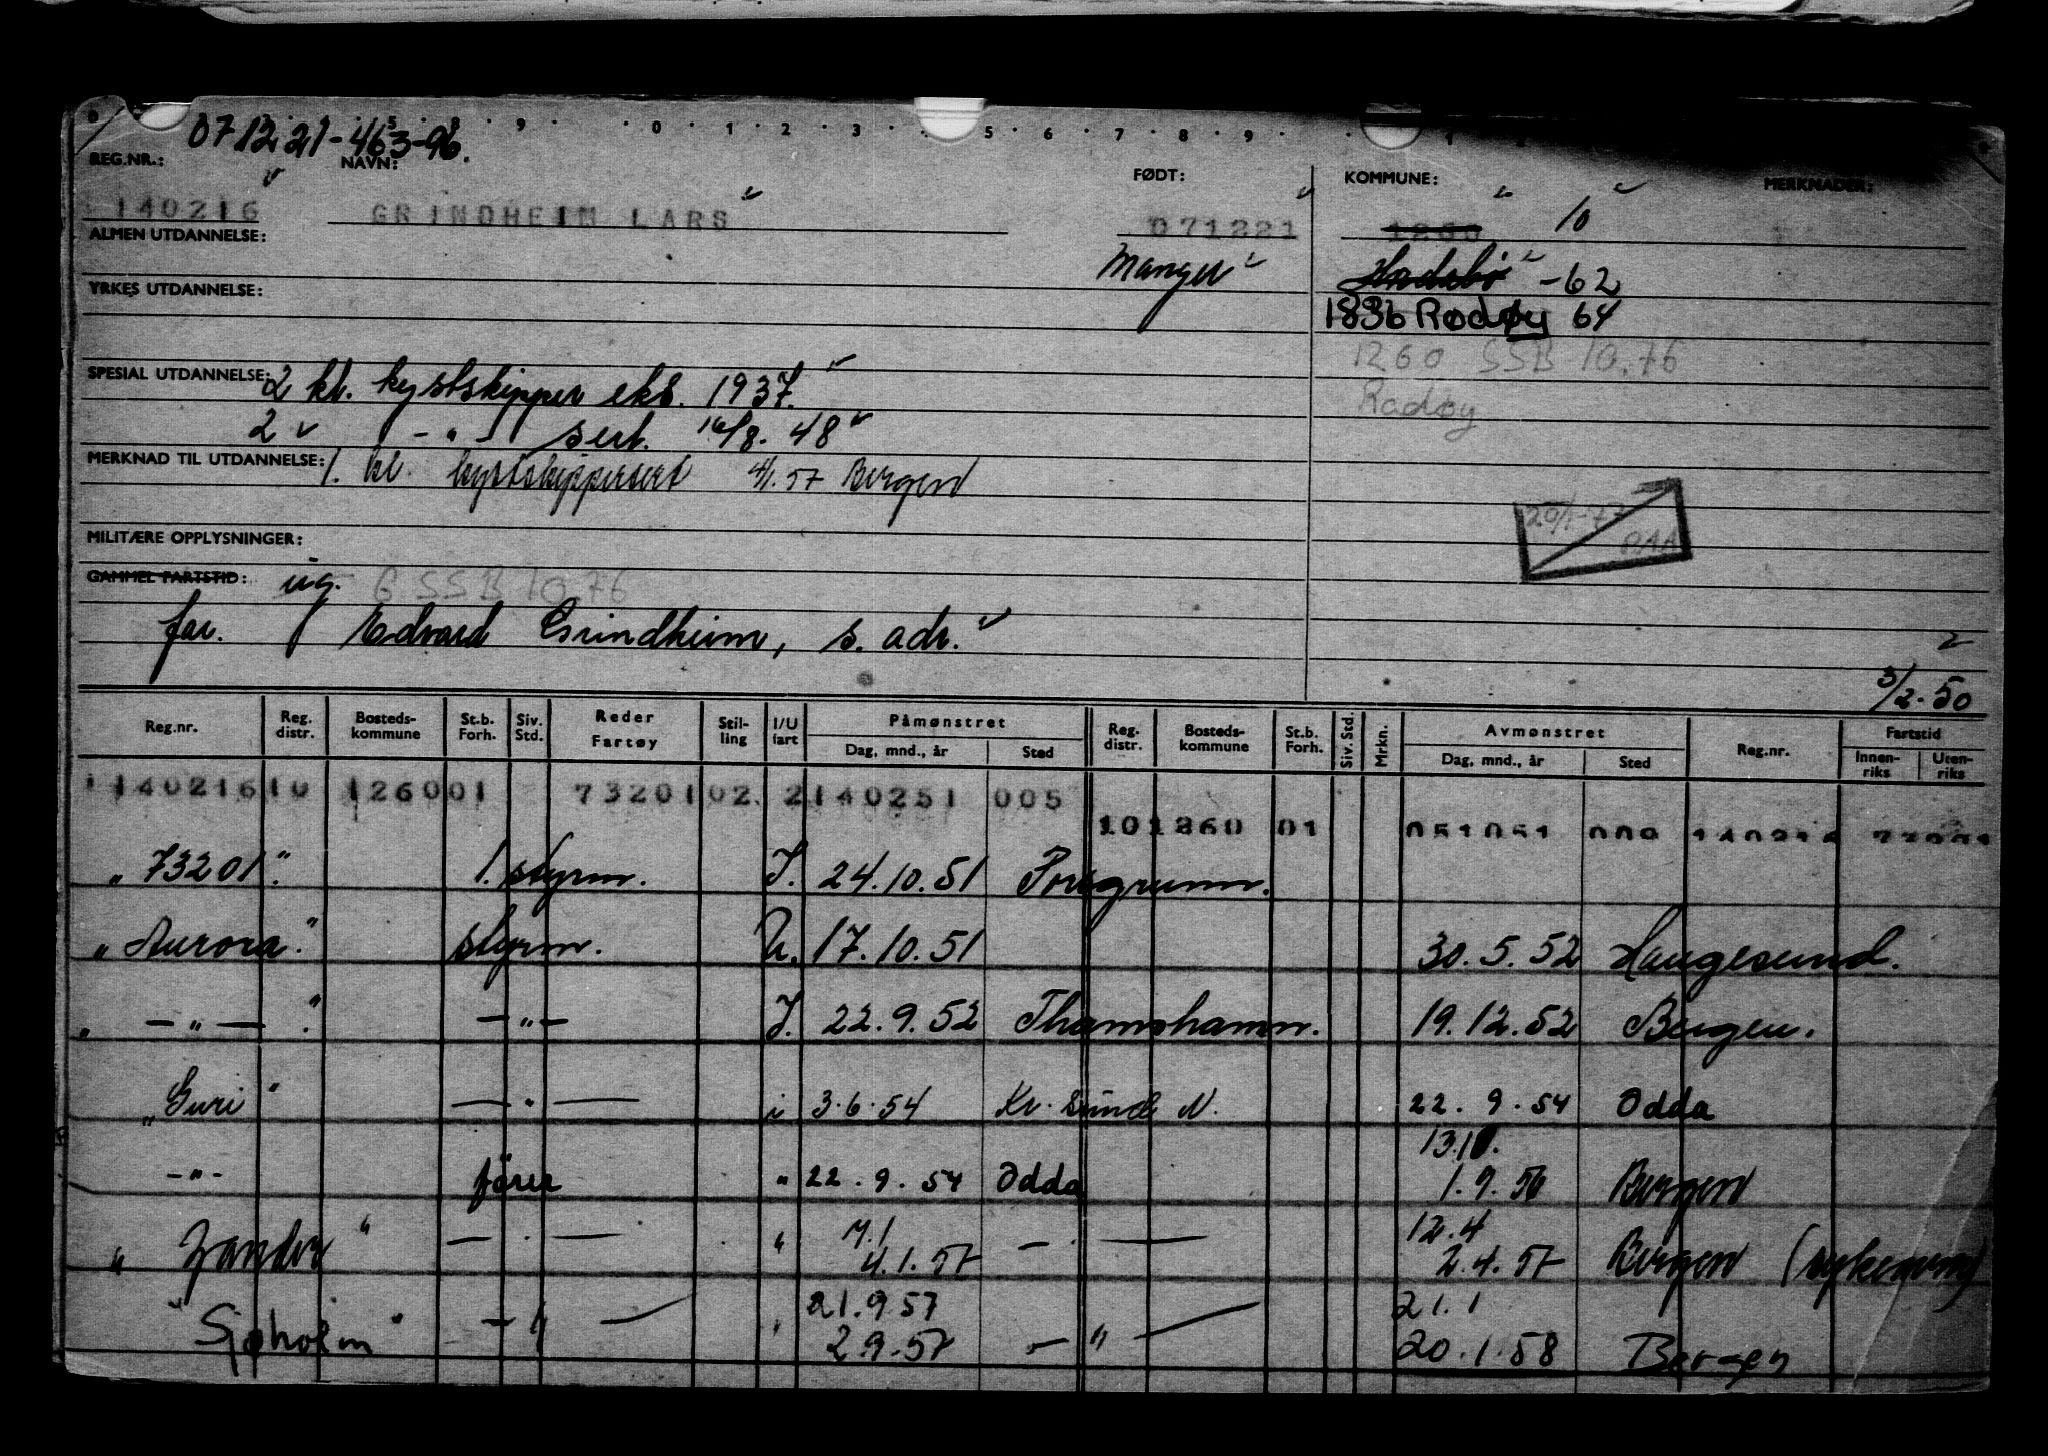 071221-46396.
REG.NR.: NAVN: FØDT: KOMMUNE: MERKNADER:
140216 GRINDHEIM LARS 071221 1260 10
ALMEN UTDANNELSE:
Manger -62
YRKES UTDANNELSE:
1836 Rødøy 64
1260 SSB 10.76
Radøy
SPESIAL UTDANNELSE: 2 kl. kystskipper eks. 1937.
2 -"- sert. 16/8. 48
MERKNAD TIL UTDANNELSE: 1. kl. kystskippersert 4/1.57 Bergen
20/1-77
MILITÆRE OPPLYSNINGER:
GAMMEL FARTSTID: ug. G SSB 10.76
far. Edvard Grindheim, s. adr.
3/2-50
Reg.nr. Reg. distr. Bosteds-kommune St.b. Forh. Siv. Std. Reder Fartøy Stil-ling I/U fart Påmønstret Dag, mnd., år Sted Reg. distr. Bosteds-kommune St.b. Forh. Siv. Std. Mrkn. Avmønstret Dag, mnd., år Sted Reg.nr. Fartstid Innen-riks Uten-riks
1140216 10 1260 01 73201 02 2 140251 005
10 1260 01 051051
"73201" 1. styrm. I. 24.10.51 Porsgrunn.
"Aurora." styrm. U. 17.10.51 30.5.52 Haugesund.
" -"- ." -"- I. 22.9.52 Thamshamn. 19.12.52 Bergen.
"Guri" -"- i 3.6.54 Kr. sund N. 22.9.54 Odda
13.10.
-"- fører " 22.9.54 Odda 1.9.56 Bergen
12.4
4.1.57 2.4.57 Bergen
21.9.57 21.1
"Sjøholm" -"- " 2.9.57 -"- 20.1.58 Bergen